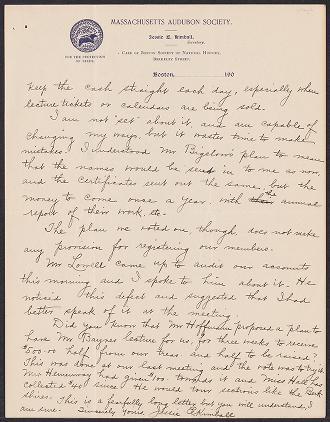 MASSACHUSETTS AUDUBON SOCIETY.
Jessie E. Kimball,
Secretary.
Care of Boston Society of Natural History,
Berkeley Street.
FOR THE PROTECTION
OF BIRDS.
Boston, 190
keep the cash straight each day, especially when
lecture tickets or calendars are being sold.
I am not "set" about it and am capable of
changing my ways, but it wastes time to make
mistakes. I understood Mr Bigelow's plan to mean
that the names would be send in to me as now,
and the certificates sent out the same, but the
money to come once a year, with the annual
report of their work, etc.
The plan we voted on, though, does not make
any provision for registering our members.
Mr Lovell came up to audit our accounts
this morning and I spoke to him about it. He
noticed this defect and suggested that I had
better speak of it at the meeting.
Did you know that Mr Hoffmann proposed a plan to
have Mr Baynes lecture for us, for three weeks to receive
$500.00 half from our treas. and half to be raised?
This was done at our last meeting and the vote was to try it.
Mr Hemenway had given $100. towards it and Miss Hall has
collected $40 since. He would tour sections like the Berk
shires. This is a fearfully long letter but you will understand, I
am sure. Sincerely yours Jessie E. Kimball